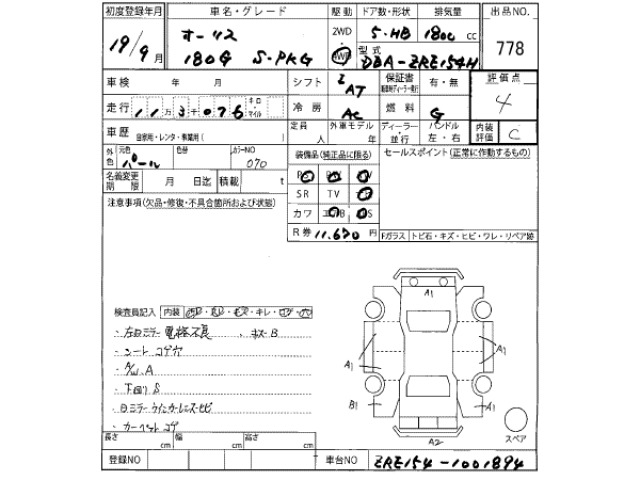 初度登録年月 車名・グレード 駆動 ドア数・形状 排気量 出品NO.
19/9月 オーリス 2WD 5・HB 1800 cc 778
180G S-PKG 4WD 型式 DBA-ZRE154H
車検 年 月 シフト AT 保証書 有・無 評価点
走行 11 3 076 キロ マイル 冷房 AC 燃料 G 4
車歴 自家用・レンタ・事業用( ) 定員 人 外車モデル 年 ディーラー・並行 ハンドル 左・右 内装評価 C
外色 元色 パール 色替 カラーNO 070 装備品(純正品に限る) セールスポイント(正常に作動するもの)
名義変更期限 月 日迄 積載 t
SR TV
注意事項(欠品・修復・不具合箇所および状態) カワ
R券 11,670 円 Fガラス トビ石・キズ・ヒビ・ワレ・リペア跡
A1
検査員記入 内装
・左ドアミラー電格不良 ・キズB
・シートコゲ穴 A1 A1
・A/W A
・下回りS
・カーペットコゲ B1 A1
A2 スペア
長さ cm 幅 cm 高さ cm
登録NO 車台NO ZRE154-1001894